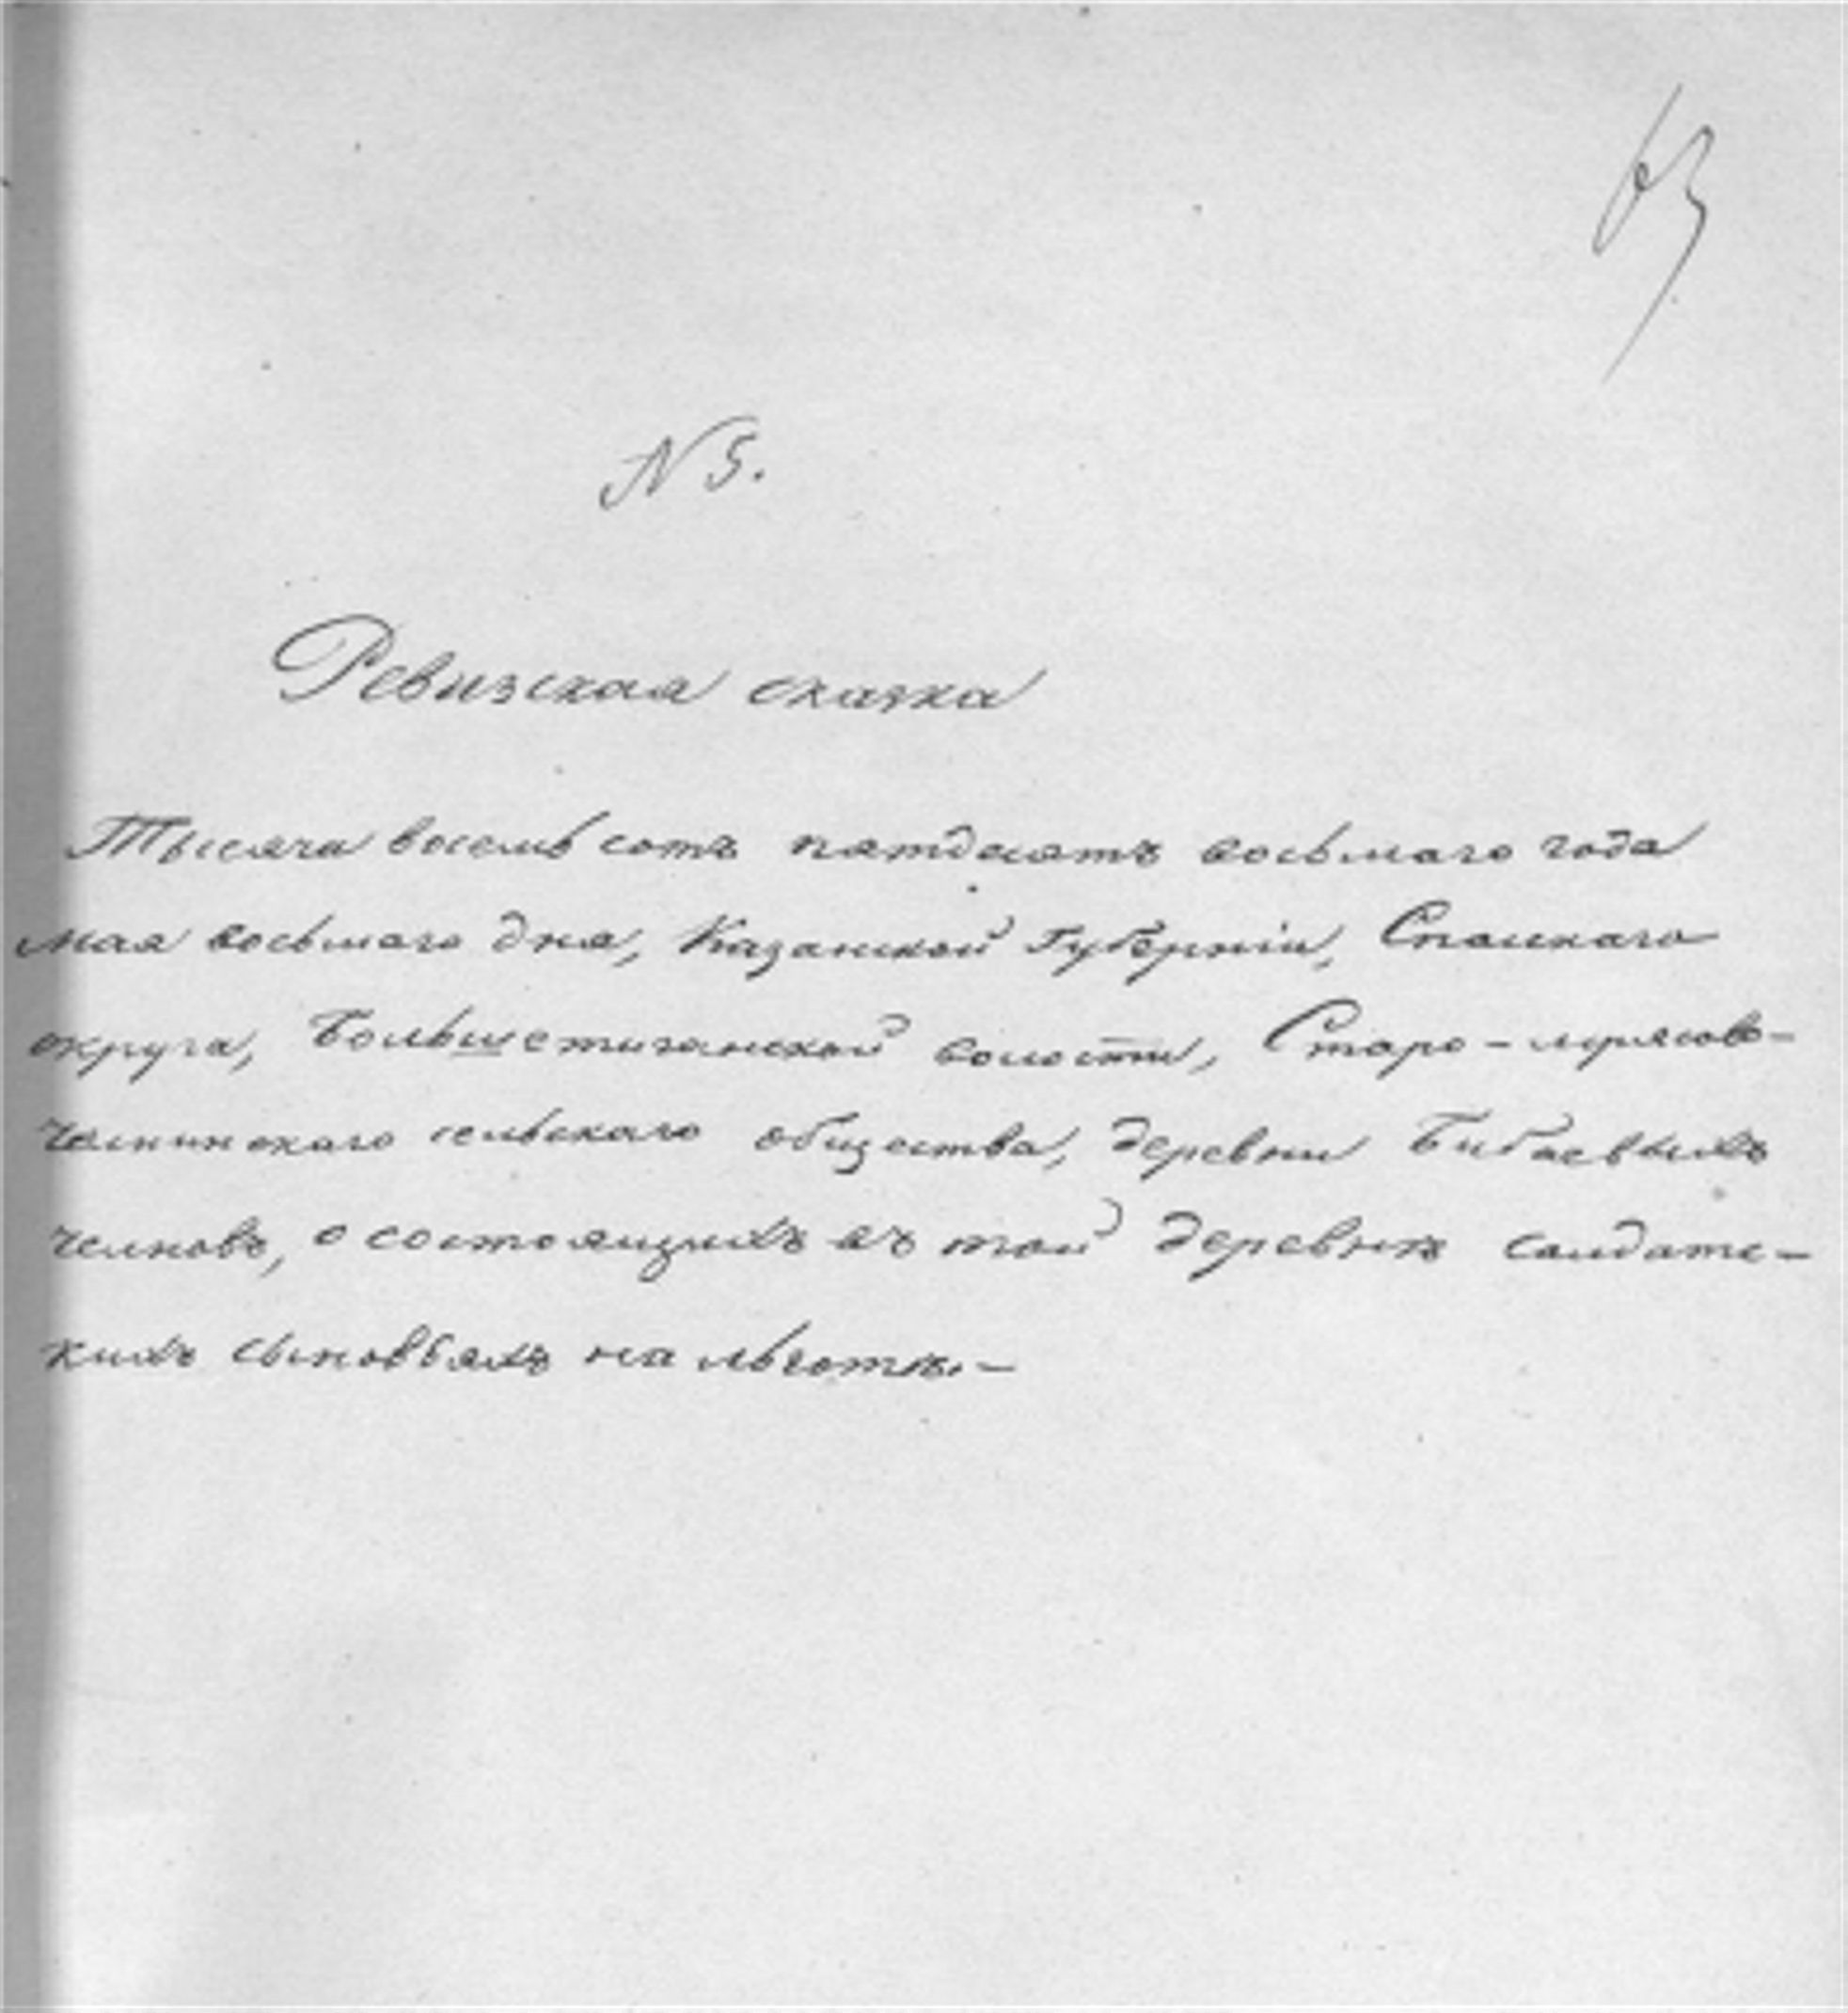 63
N 5.
Ревизская сказка
Тысяча восемь сотъ пятдесятъ восьмаго года
мая восьмаго дня, Казанской Губерніи, Спаскаго
округа, Большетиганской волости, Старо-
челнинскаго сельскаго общества, деревни Бибаевыхъ
челновъ, о состоящихъ въ той деревнѣ солдатс-
кихъ сыновьяхъ на льготѣ.-